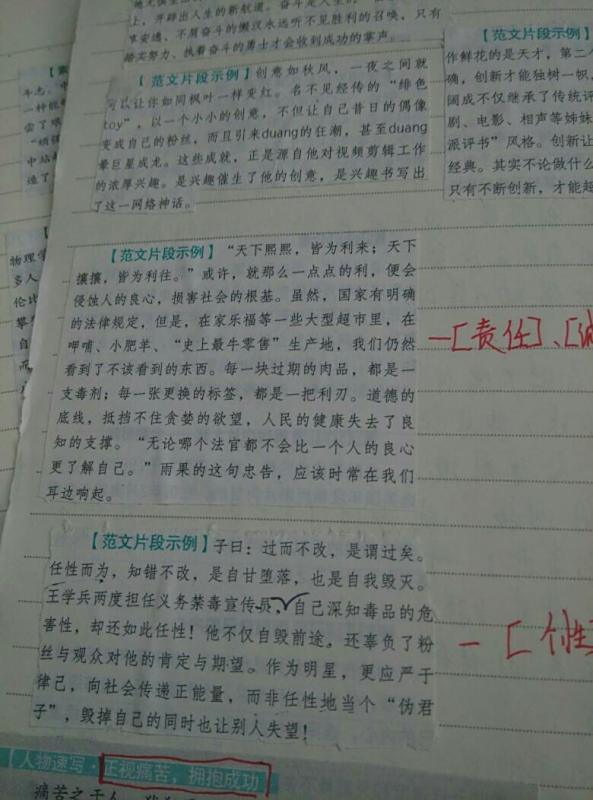 上，开辟出人生的新航道。奋斗是人生的
享安逸、不屑奋斗的懒汉永远听不见胜利的召唤，只有
踏实努力、执着奋斗的勇士才会收到成功的掌声。
【范文片段示例】创意如秋风，一夜之间就
可以让你如同枫叶一样变红。名不见经传的“绯色
toy”，以一个小小的创意，不但让自己昔日的偶像
变成自己的粉丝，而且引来duang的狂潮，甚至duang
晕巨星成龙。这些成就，正是源自他对视频剪辑工作
的浓厚兴趣。是兴趣催生了他的创意，是兴趣书写出
了这一网络神话。
作鲜花的是天才，第二
确，创新才能独树一帜，
阔成不仅继承了传统评
剧、电影、相声等姊妹
派评书”风格。创新让
经典。其实不论做什么
只有不断创新，才能超
物理学
多人
伦比
攀
自
【范文片段示例】“天下熙熙，皆为利来；天下
攘攘，皆为利往。”或许，就那么一点点的利，便会
侵蚀人的良心，损害社会的根基。虽然，国家有明确
的法律规定，但是，在家乐福等一些大型超市里，在
呷哺、小肥羊、“史上最牛零售”生产地，我们仍然
看到了不该看到的东西。每一块过期的肉品，都是一
支毒剂；每一张更换的标签，都是一把利刃。道德的
底线，抵挡不住贪婪的欲望，人民的健康失去了良
知的支撑。“无论哪个法官都不会比一个人的良心
更了解自己。”雨果的这句忠告，应该时常在我们
耳边响起。
—[责任]、[诚
【范文片段示例】子曰：过而不改，是谓过矣。
任性而为，知错不改，是自甘堕落，也是自我毁灭。
王学兵两度担任义务禁毒宣传员，自己深知毒品的危
害性，却还如此任性！他不仅自毁前途，还辜负了粉
丝与观众对他的肯定与期望。作为明星，更应严于
律己，向社会传递正能量，而非任性地当个“伪君
子”，毁掉自己的同时也让别人失望！
—[个性
【人物速写·正视痛苦，拥抱成功
痛苦之于人